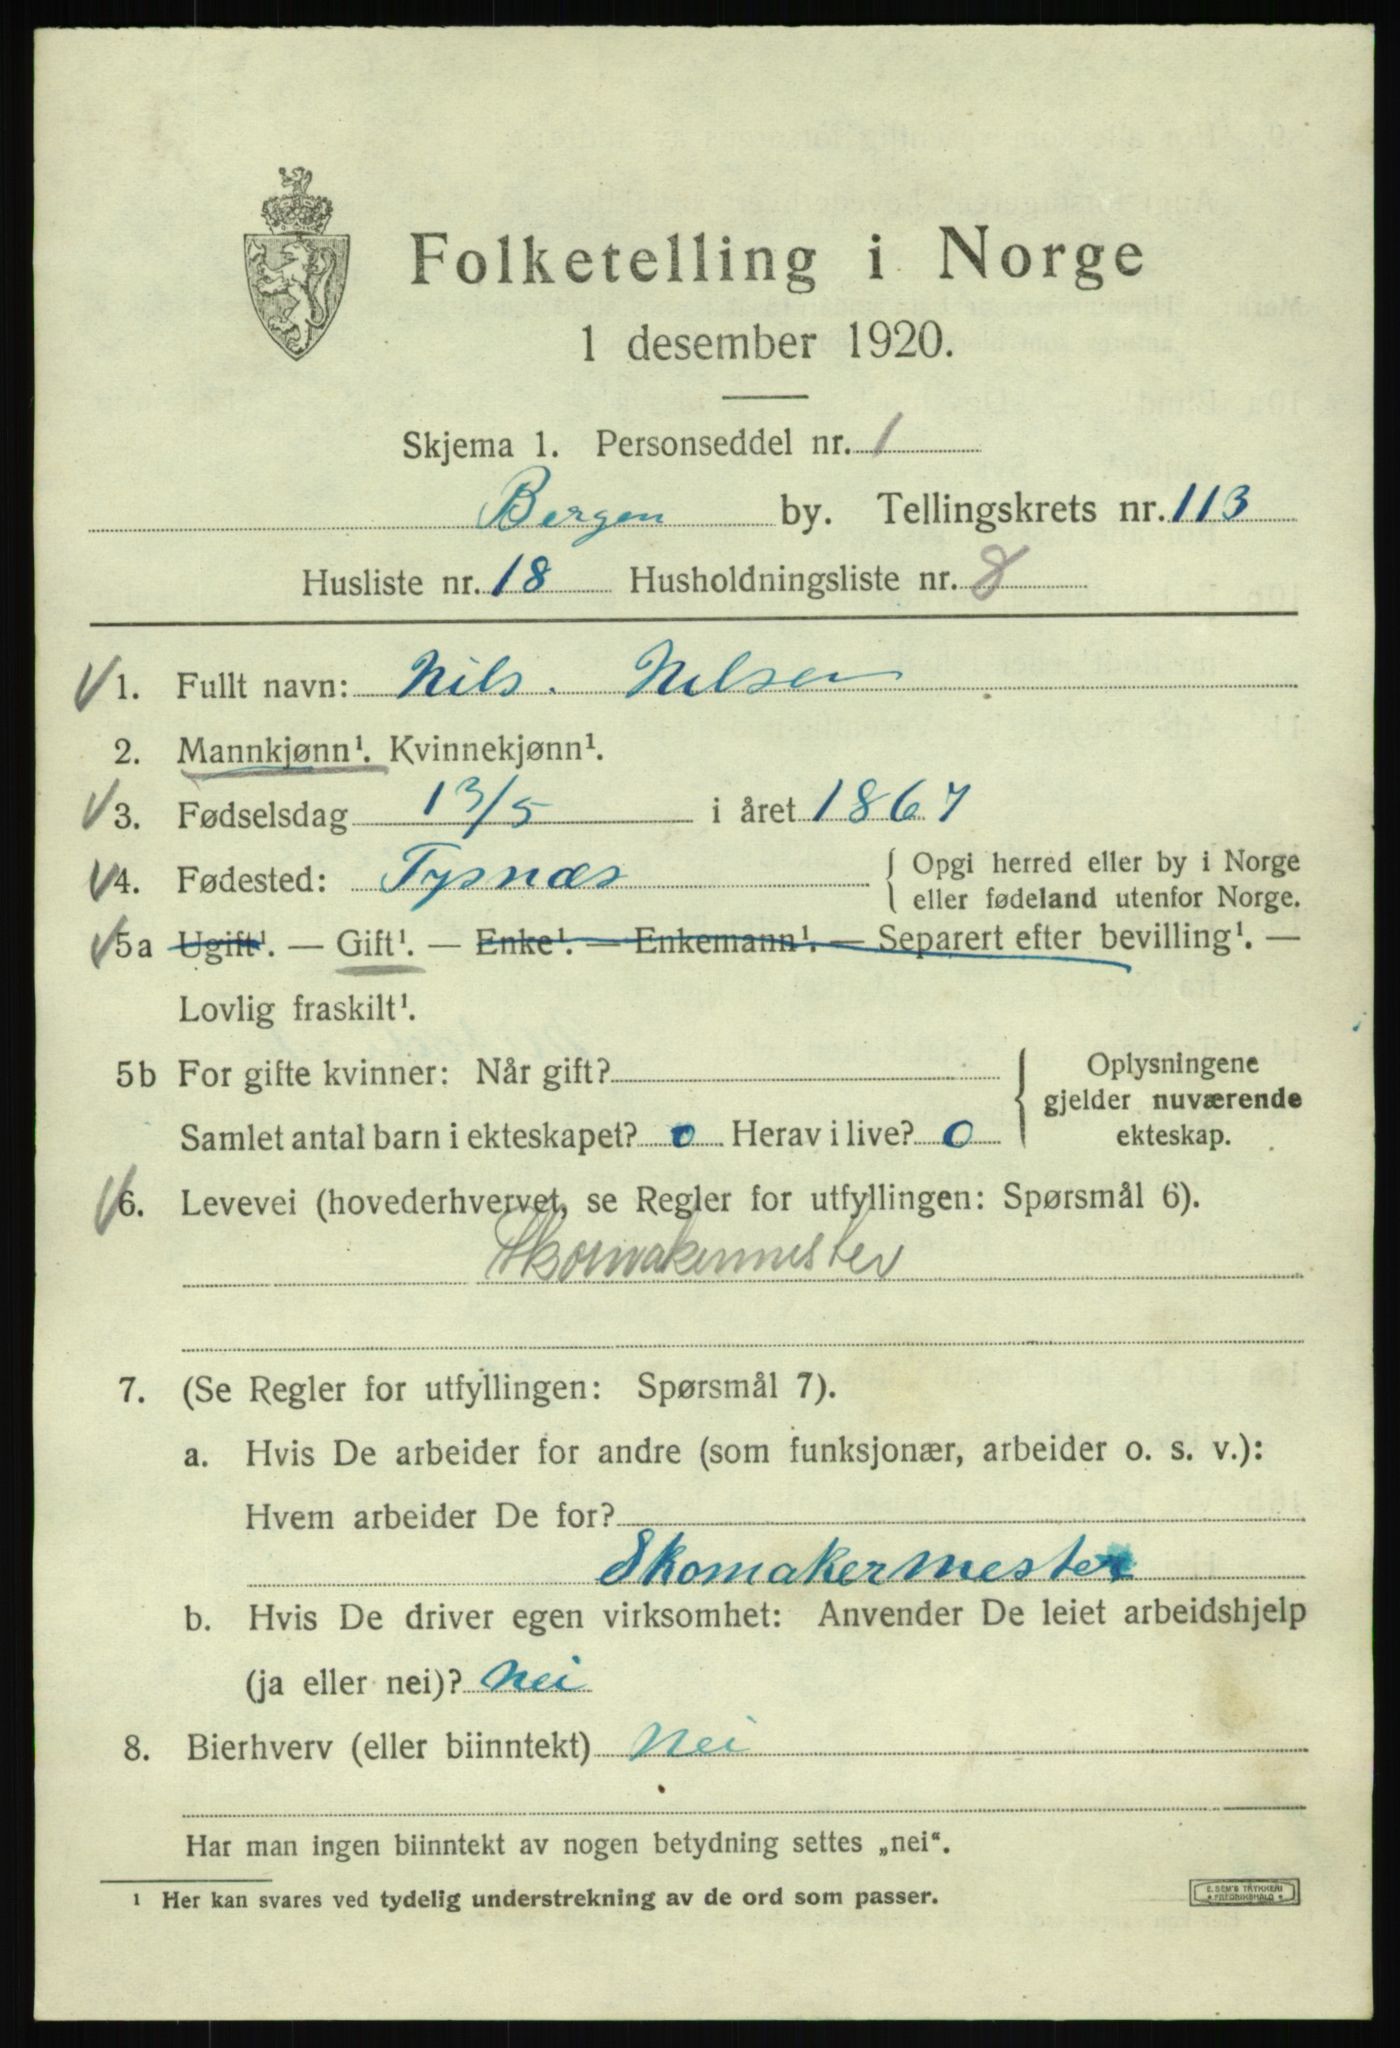 Folketelling i Norge
1 desember 1920.
Skjema 1. Personseddel nr. 1
Bergen by. Tellingskrets nr. 113
Husliste nr. 18 Husholdningsliste nr. 8
1. Fullt navn: Nils. Nilsen
2. Mannkjønn¹. Kvinnekjønn¹.
3. Fødselsdag 13/5 i året 1867
4. Fødested: Tysnæs { Opgi herred eller by i Norge
eller fødeland utenfor Norge.
5a Ugift¹. — Gift¹. — Enke¹. — Enkemann¹. — Separert efter bevilling¹. —
Lovlig fraskilt¹.
5b For gifte kvinner: Når gift?
Samlet antal barn i ekteskapet? 0 Herav i live? 0
Oplysningene
gjelder nuværende
ekteskap.
6. Levevei (hovederhvervet, se Regler for utfyllingen: Spørsmål 6).
Skomakermester
7. (Se Regler for utfyllingen: Spørsmål 7).
a. Hvis De arbeider for andre (som funksjonær, arbeider o. s. v.):
Hvem arbeider De for?
Skomakermester
b. Hvis De driver egen virksomhet: Anvender De leiet arbeidshjelp
(ja eller nei)? Nei
8. Bierhverv (eller biinntekt) Nei
Har man ingen biinntekt av nogen betydning settes „nei“.
¹ Her kan svares ved tydelig understrekning av de ord som passer.
E. SEM'S TRYKKERI
FREDRIKSHALD